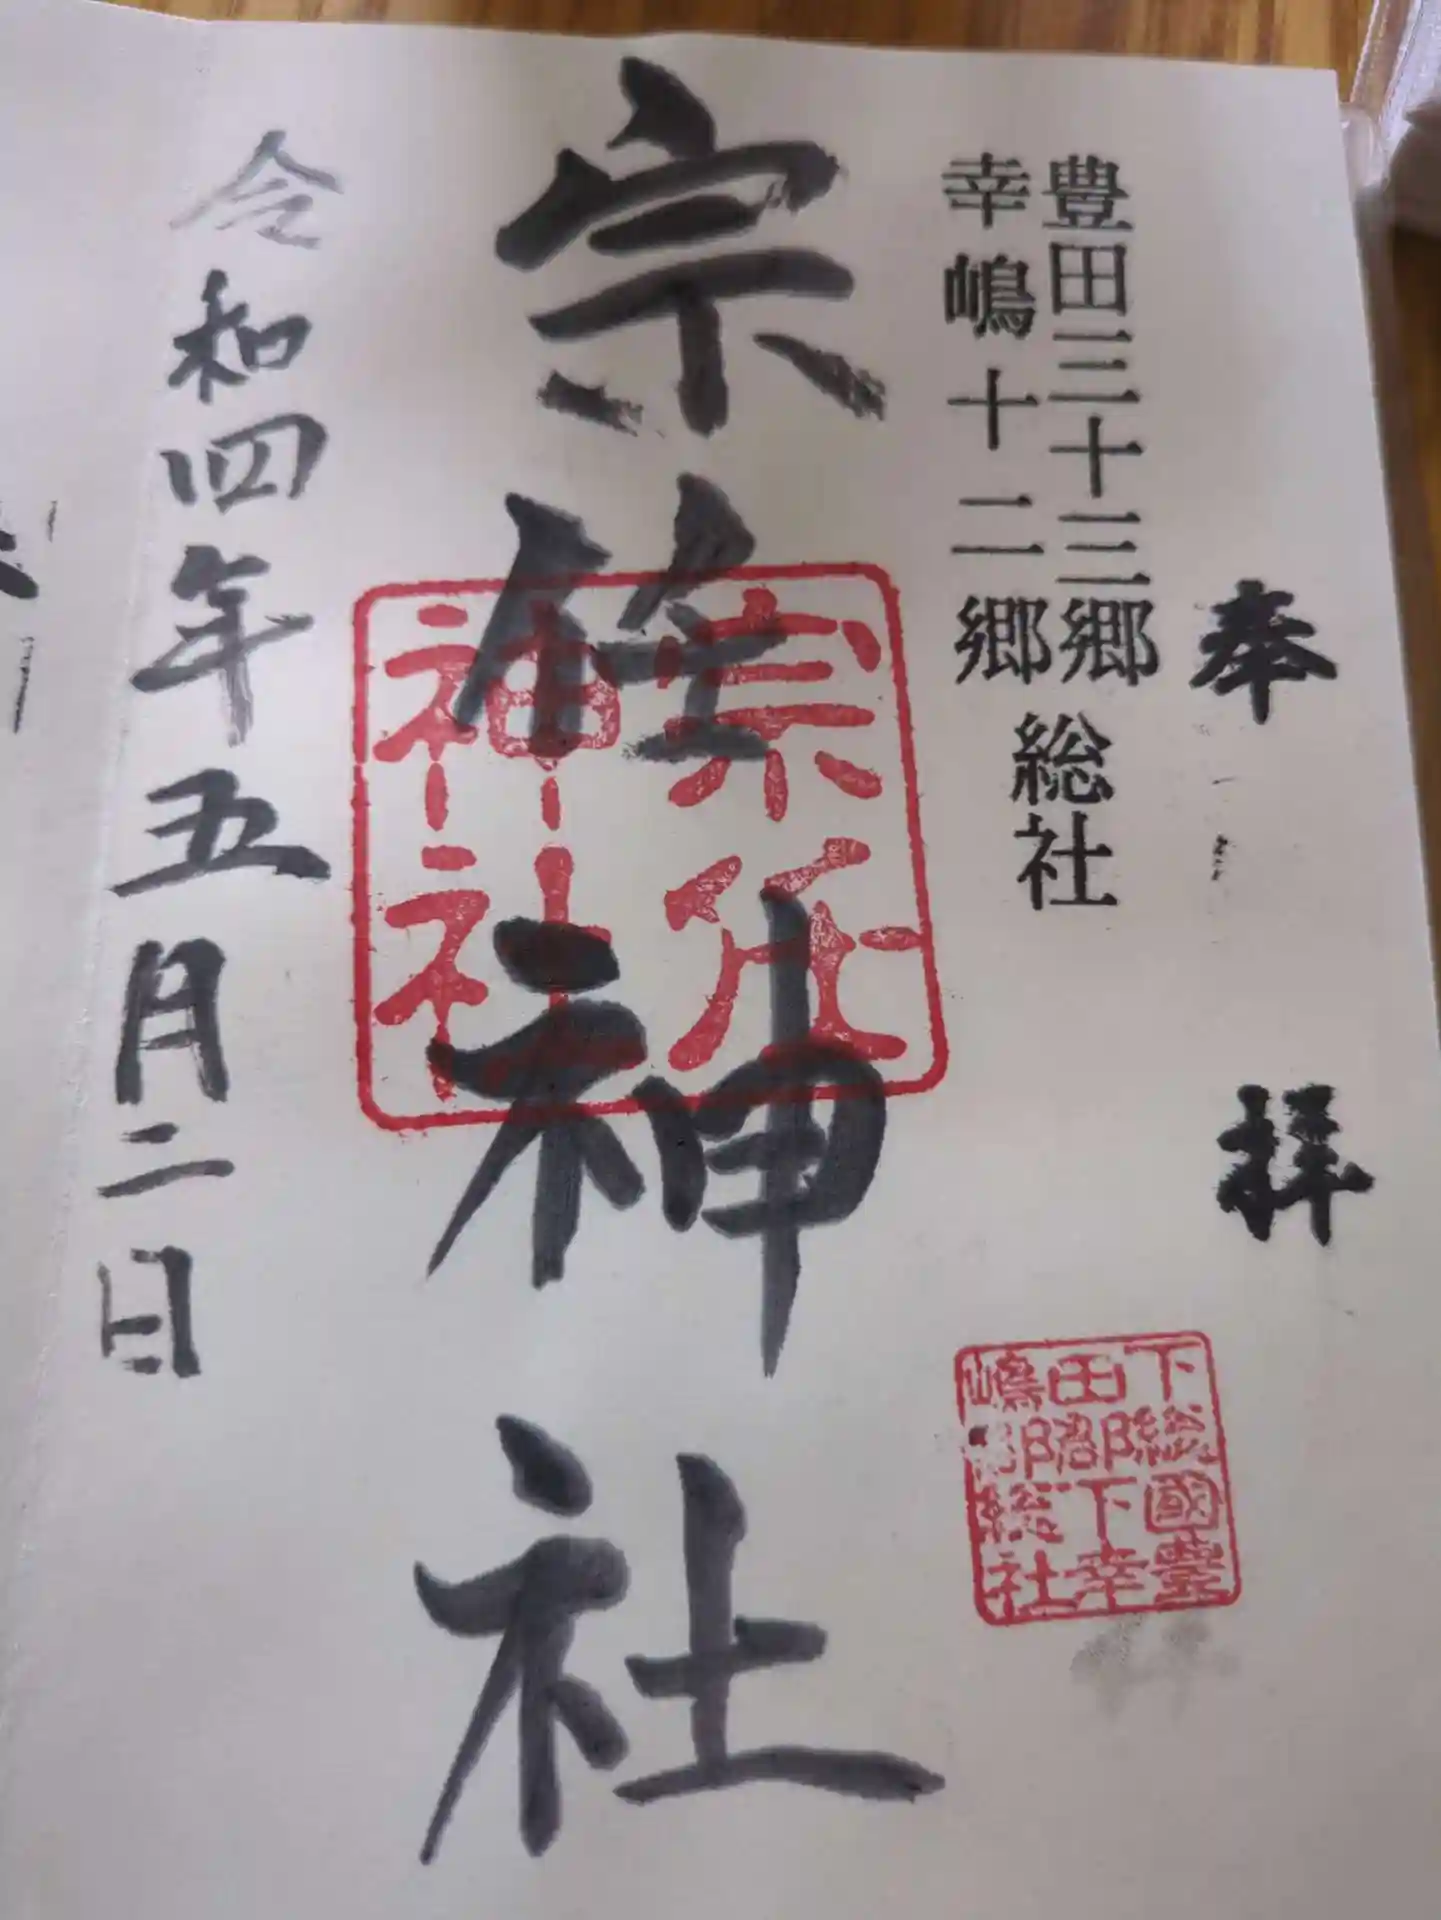 奉拝
豊田三十三郷
幸嶋十二郷
総社
宗任神社
宗任
神社
下総國豊
田郡下幸
嶋郡総社
令和四年五月二日